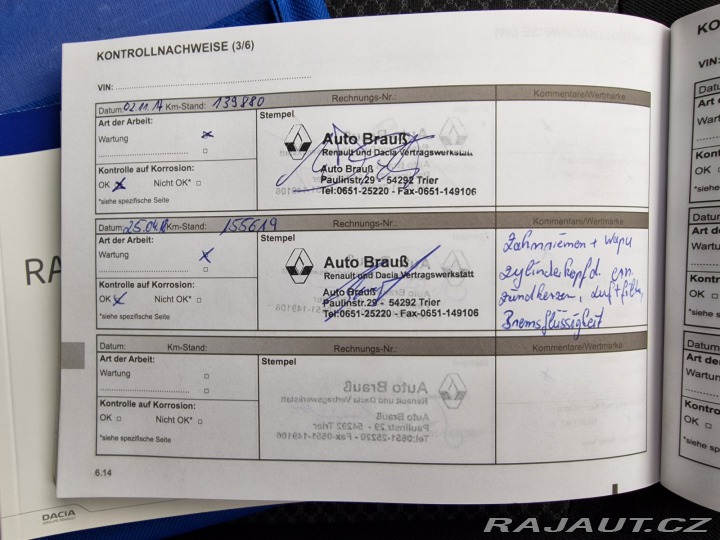 KONTROLLNACHWEISE (3/6)
VIN:
Datum: 02.11.17 Km-Stand: 139880 Rechnungs-Nr.: Kommentare/Wertmarke
Art der Arbeit:
Wartung
Kontrolle auf Korrosion:
OK Nicht OK*
*siehe spezifische Seite
Stempel
Auto Brauß
Renault und Dacia Vertragswerkstatt
Auto Brauß
Paulinstr.29 - 54292 Trier
Tel:0651-25220 - Fax-0651-149106
Datum: 25.04.18 Km-Stand: 155619 Rechnungs-Nr.: Kommentare/Wertmarke
Art der Arbeit:
Wartung
Kontrolle auf Korrosion:
OK Nicht OK*
*siehe spezifische Seite
Stempel
Auto Brauß
Renault und Dacia Vertragswerkstatt
Auto Brauß
Paulinstr.29 - 54292 Trier
Tel:0651-25220 - Fax-0651-149106
Zahnriemen + Wapu
Zylinderkopfd. ern.
Zündkerzen, Luftfilter,
Bremsflüssigkeit
Datum: Km-Stand: Rechnungs-Nr.: Kommentare/Wertmarke
Art der Arbeit:
Wartung
Kontrolle auf Korrosion:
OK Nicht OK*
*siehe spezifische Seite
Stempel
6.14
RA
DACIA
KO
VIN:
Datu
Art d
Wartu
Kontr
OK
*siehe
Datum
Art de
Wartun
Kontro
OK
*siehe s
Datum
Art der
Wartun
Kontro
OK
*siehe s
RAJAUT.CZ